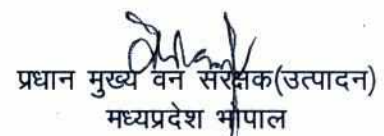 प्रधान मुख्य वन संरक्षक(उत्पादन)
मध्यप्रदेश भोपाल